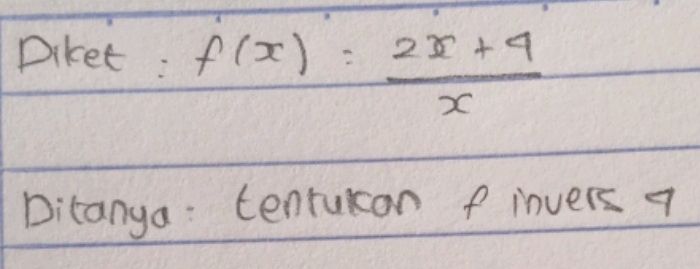 Diket : f(x) = 2x + 4
x
Ditanya : tentukan f invers 4